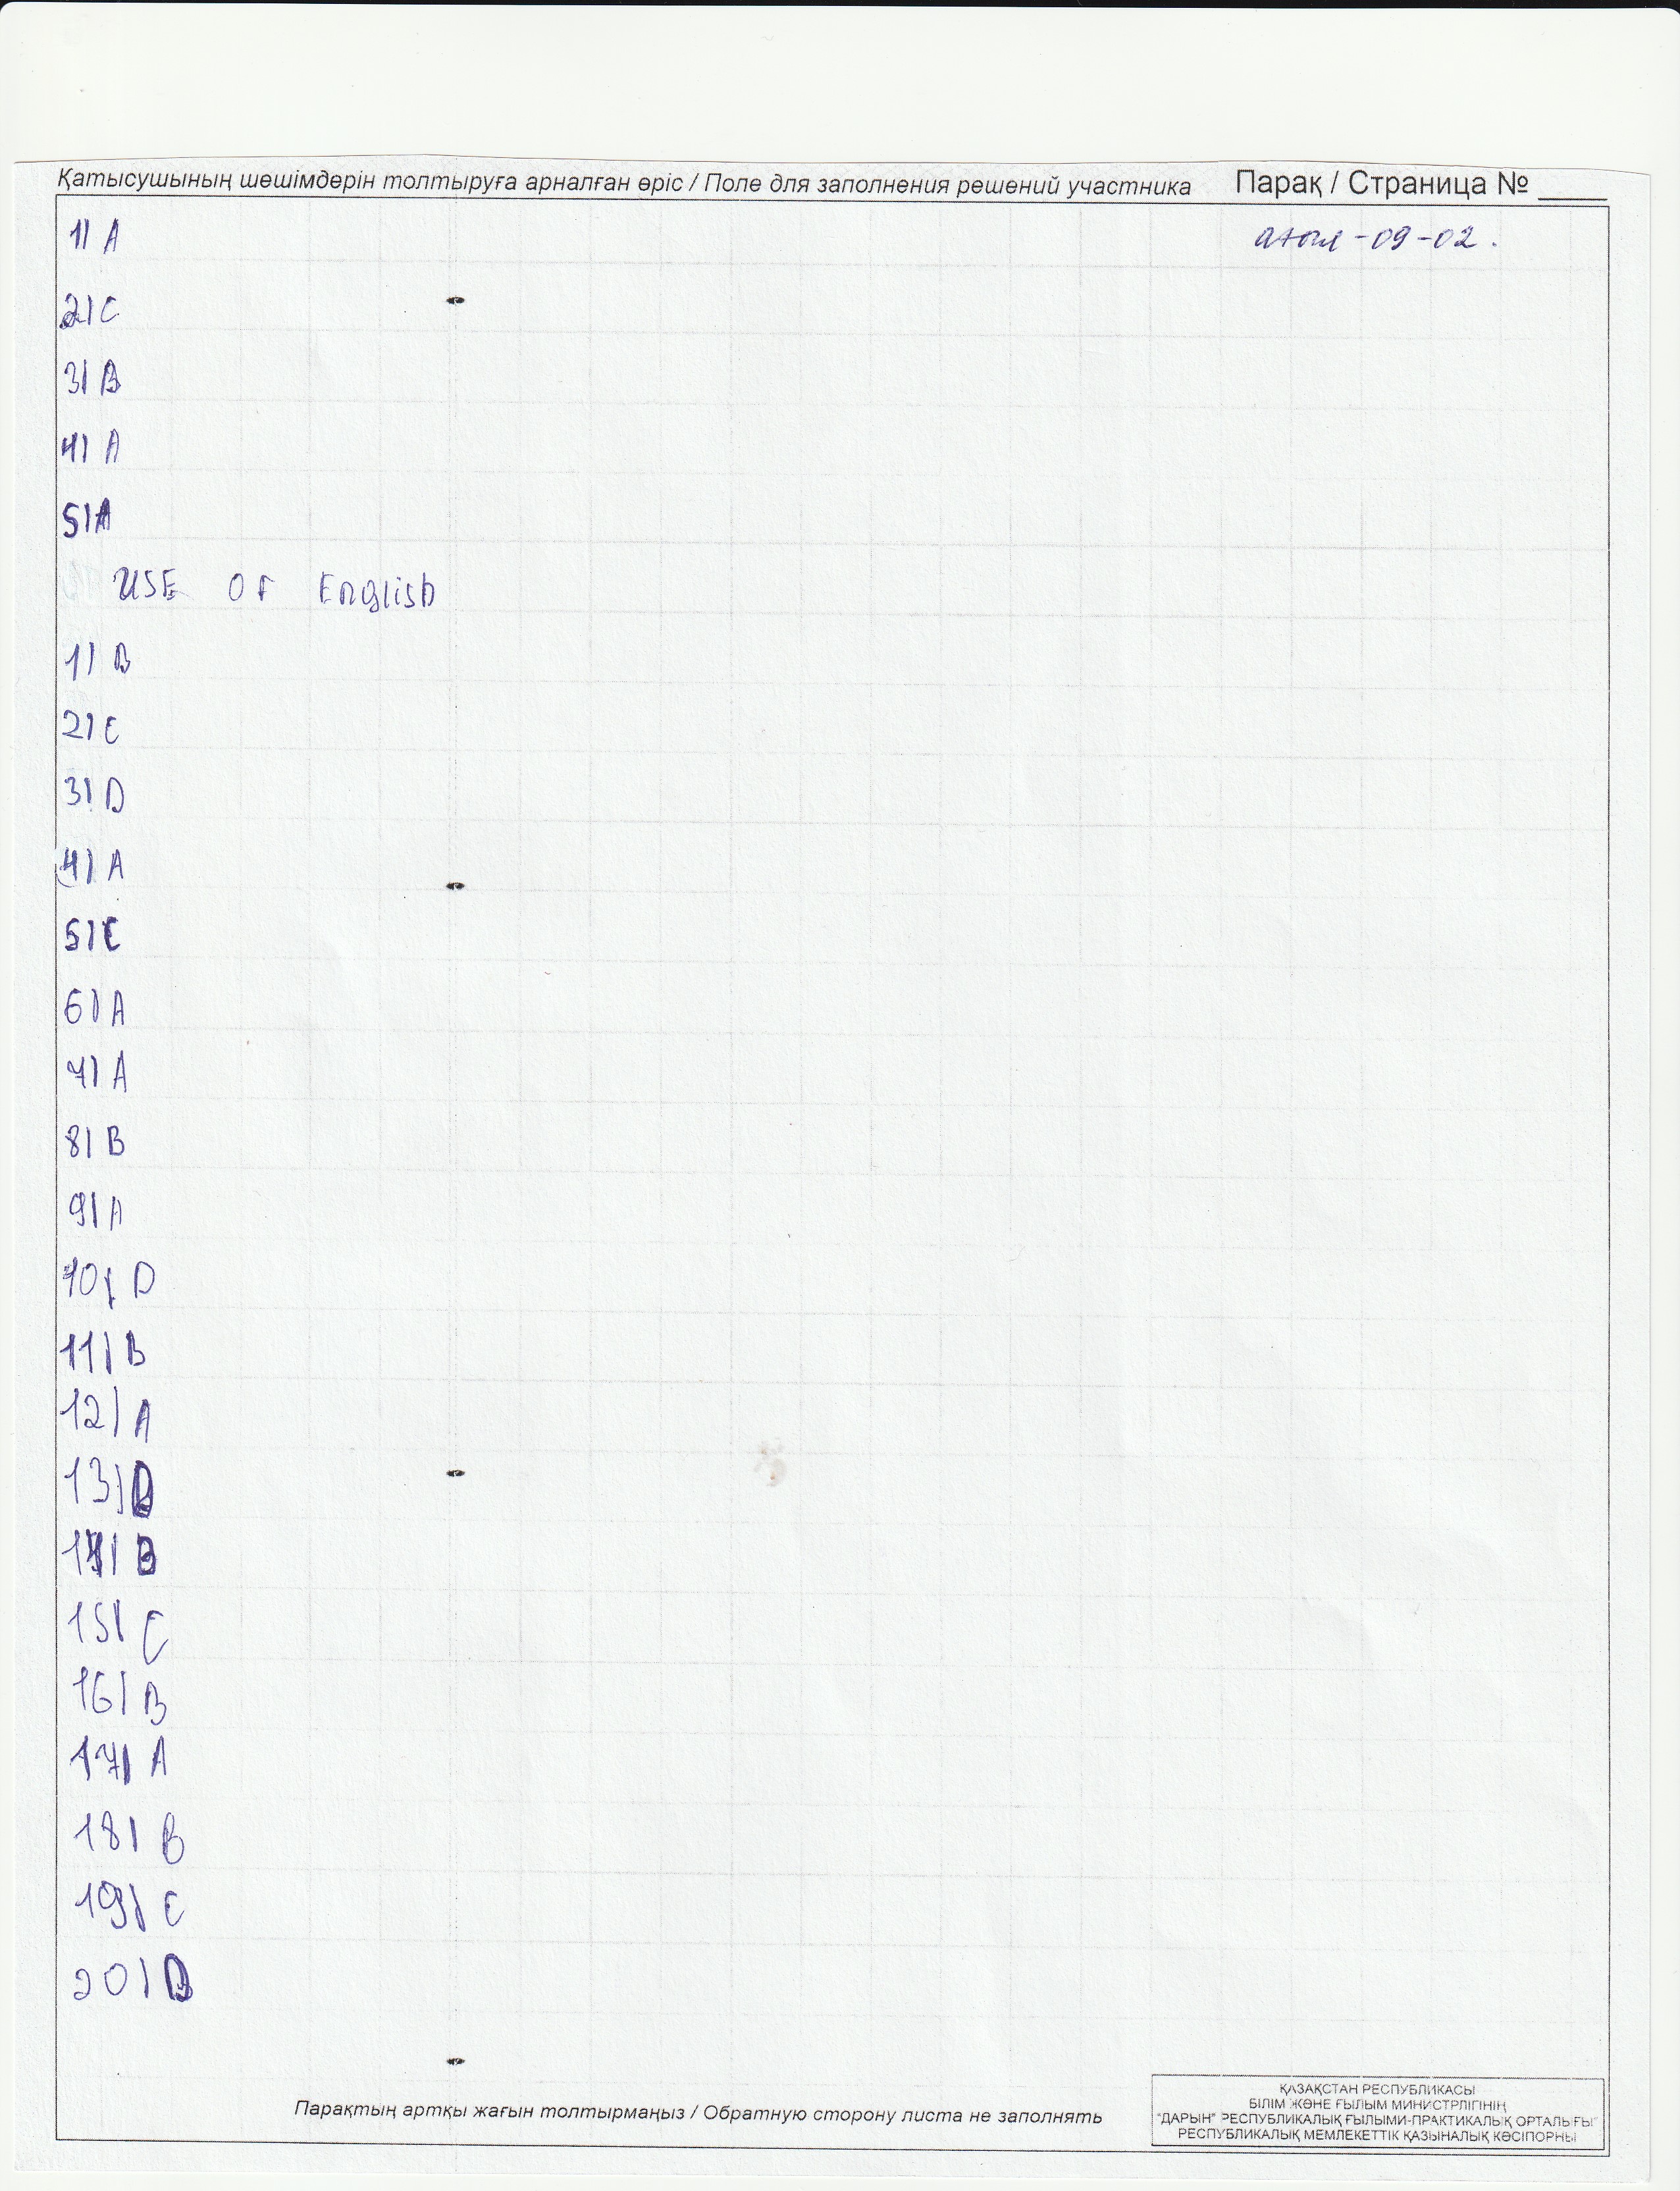 Қатысушының шешімдерін толтыруға арналған өріс / Поле для заполнения решений участника Парақ / Страница № ____
1) A -09-02.
2) C
3) B
4) A
5) A
USE OF English
1) B
2) C
3) D
4) A
5) C
6) A
7) A
8) B
9) A
10) D
11) B
12) A
13) D
14) B
15) C
16) B
17) A
18) B
19) C
20) D
Парақтың артқы жағын толтырмаңыз / Обратную сторону листа не заполнять
ҚАЗАҚСТАН РЕСПУБЛИКАСЫ
БІЛІМ ЖӘНЕ ҒЫЛЫМ МИНИСТРЛІГІНІҢ
"ДАРЫН" РЕСПУБЛИКАЛЫҚ ҒЫЛЫМИ-ПРАКТИКАЛЫҚ ОРТАЛЫҒЫ"
РЕСПУБЛИКАЛЫҚ МЕМЛЕКЕТТІК ҚАЗЫНАЛЫҚ КӘСІПОРНЫ